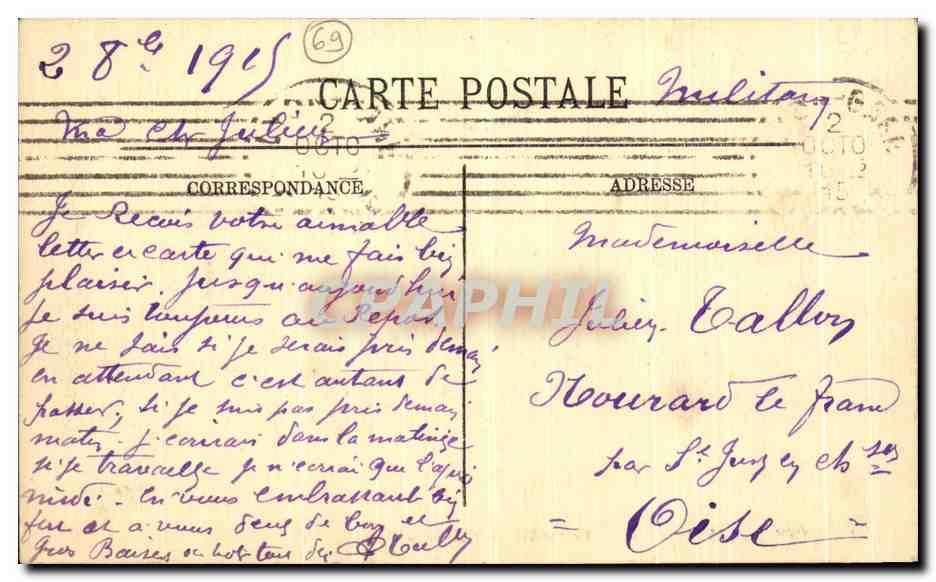 2 8bre 1915
69
CARTE POSTALE
Militaire
Ma Ch Julien
2
OCTO
15
2
OCTO
15
CORRESPONDANCE
ADRESSE
Je Recois votre aimable
letter et carte qui me fais bien
plaisir. jusqu'aujourd'hui
je suis toujours au Repos.
Je ne sais si je serais pris demain
en attendant c'est autant de
passer, si je suis pas pris demain
matin. j'ecrirais dans la matinée
si je travaille je n'ecrirai que l'après
midi. En vous embrassant bien
fort et a vous deux de
Gros Baisers
Mademoiselle
Julien Tallon
Nourard le franc
par St Just en chsée
= Oise =
DELCAMPHIL